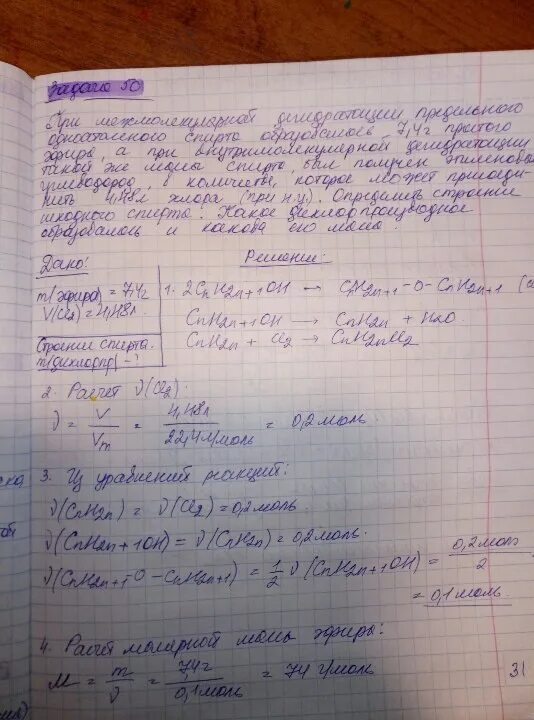 Задача 50
При межмолекулярной дегидратации предельного
одноатомного спирта образовалось 7,4г простого
эфира, а при внутримолекулярной дегидратации
такой же массы спирта был получен этиленовый
углеводород в количестве, которое может присоеди-
нить 4,48л хлора (при н.у.). Определить строение
исходного спирта. Какое дихлорпроизводное
образовалось и какова его масса.
Дано:
Решение:
m(эфира) = 7,4г
V(Cl2) = 4,48л.
Строение спирта-
m(дихлорпр) - ?
1. 2CnH2n+1OH → CnH2n+1-O-CnH2n+1
CnH2n+1OH → CnH2n + H2O
CnH2n + Cl2 → CnH2nCl2
2. Расчет ν(Cl2):
ν = V/Vm = 4,48л/22,4л/моль = 0,2моль
3. Из уравнений реакций:
ν(CnH2n) = ν(Cl2) = 0,2моль
ν(CnH2n+1OH) = ν(CnH2n) = 0,2моль.
ν(CnH2n+1O-CnH2n+1) = 1/2 ν(CnH2n+1OH) = 0,2моль/2
= 0,1моль.
4. Расчет молярной массы эфира:
M = m/ν = 7,4г/0,1моль = 74 г/моль
31